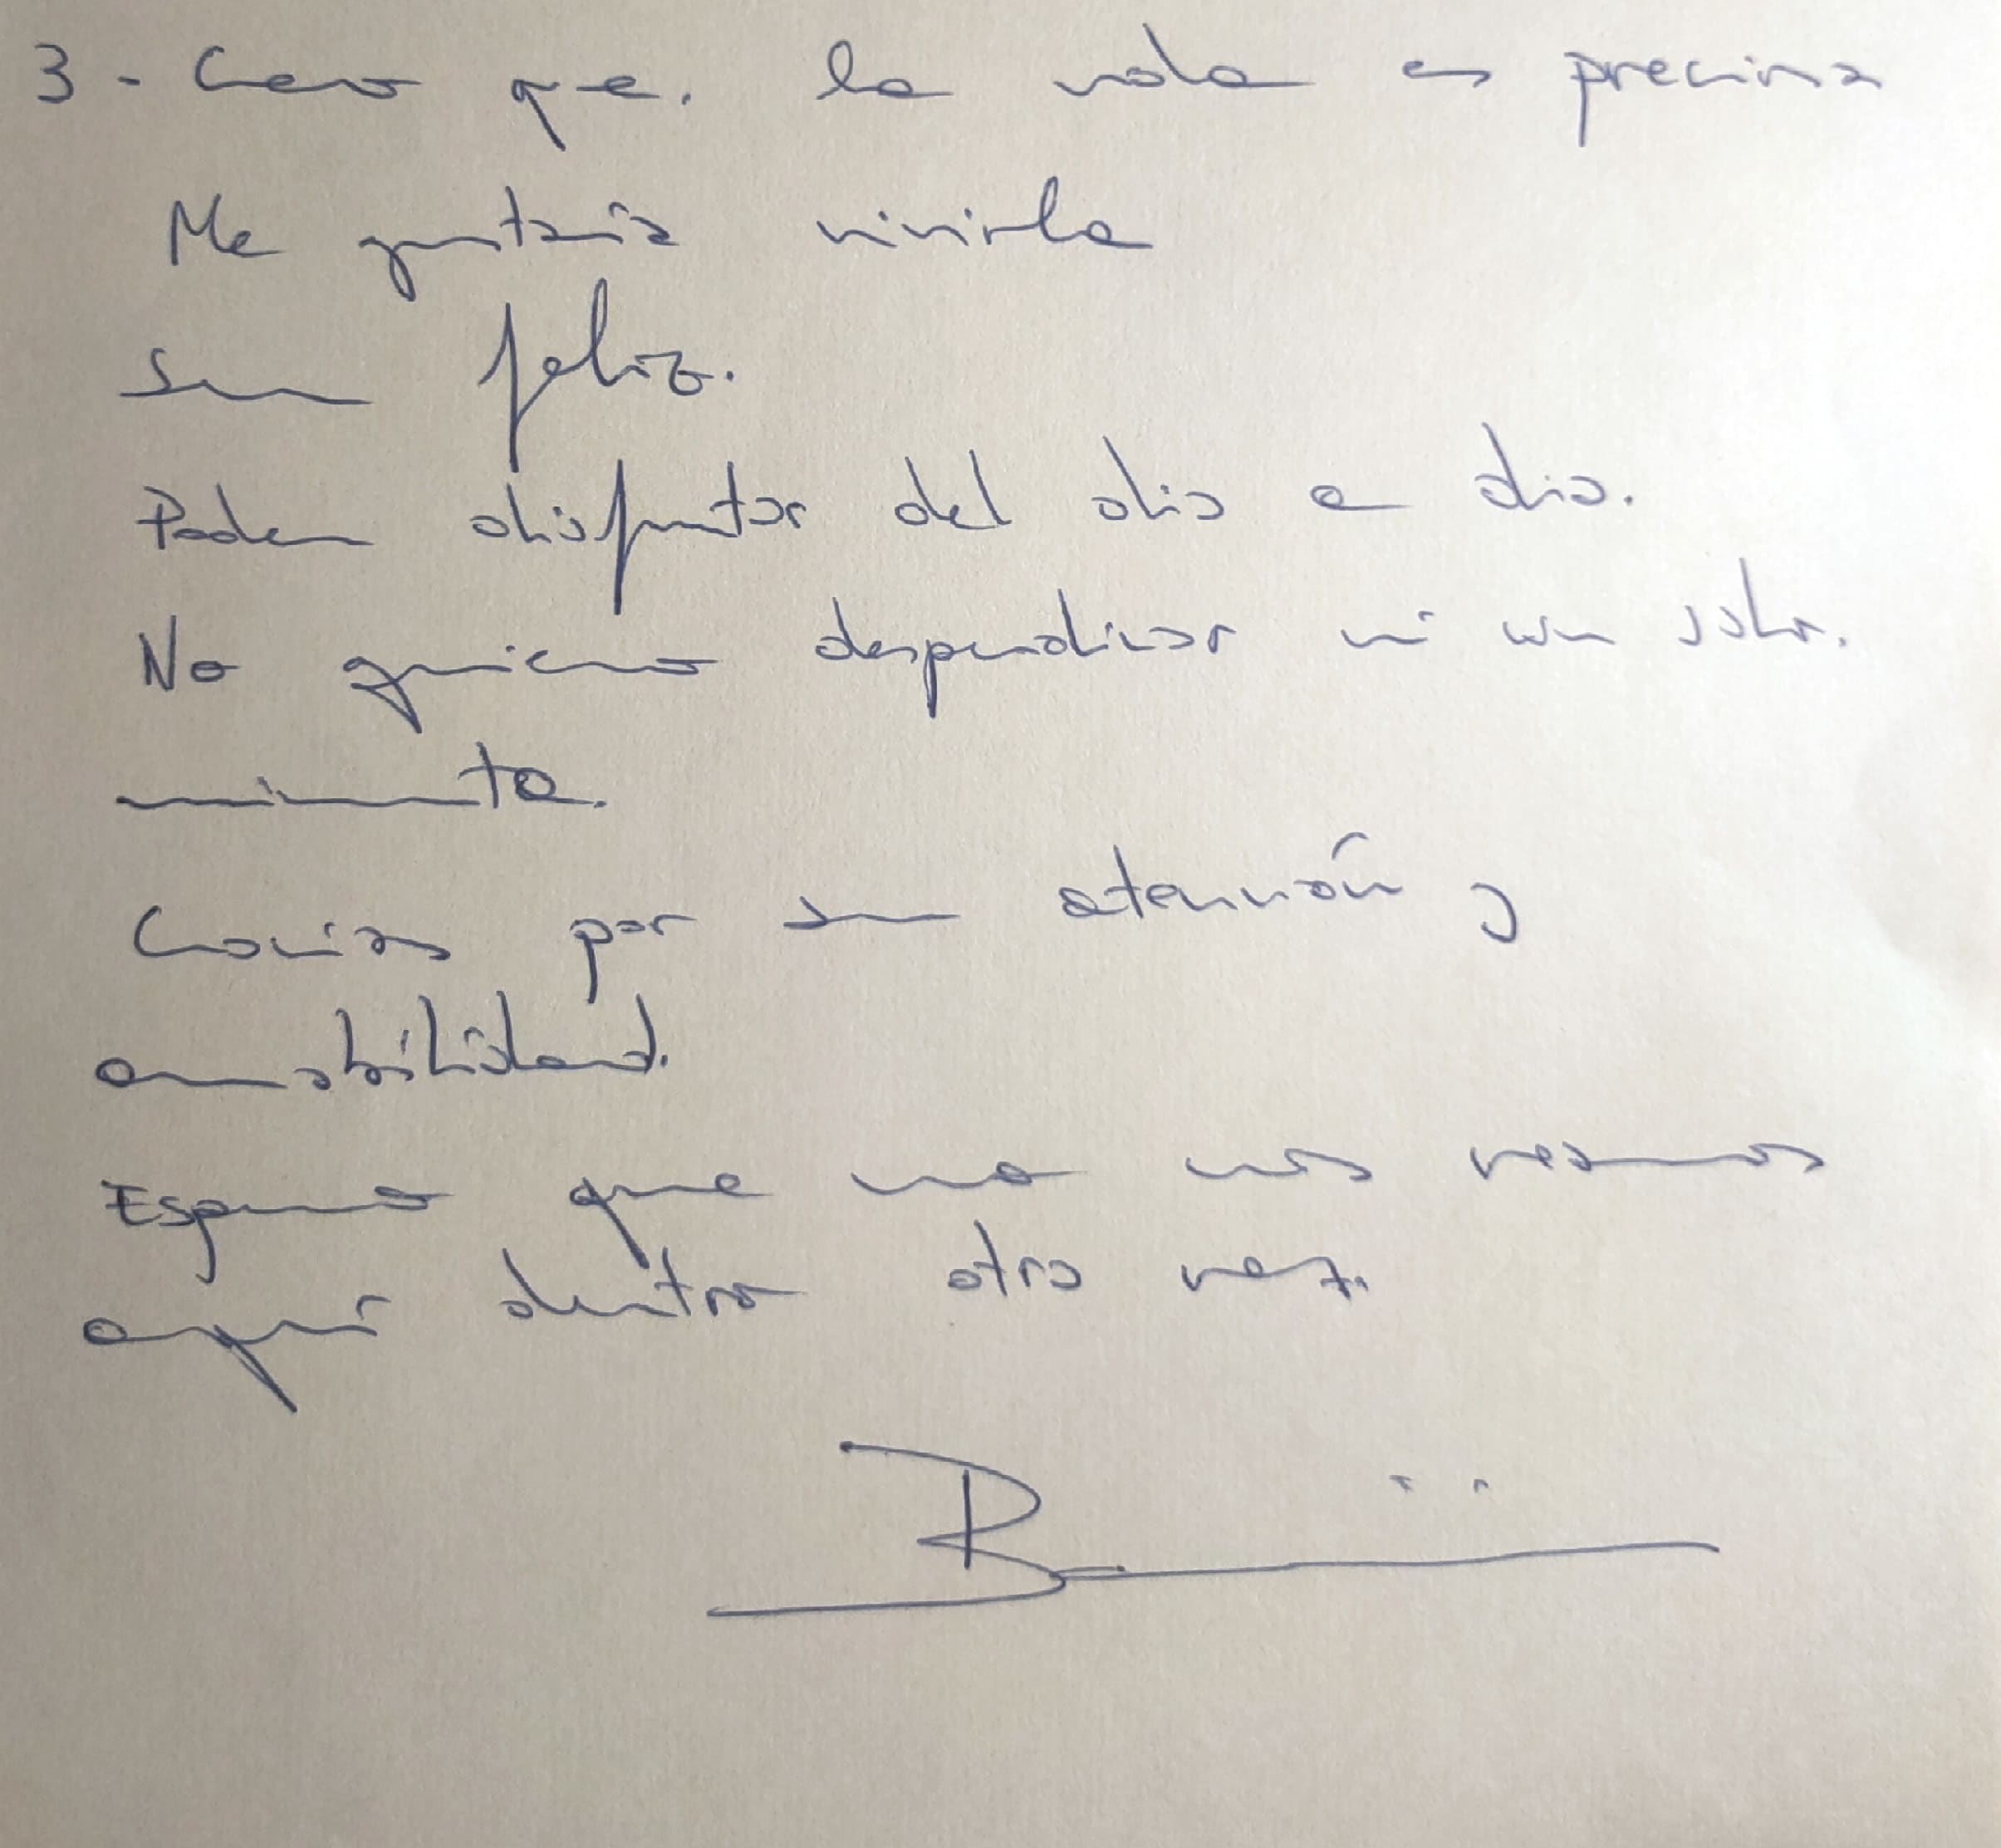 3 - Creo que. la vida es preciosa
Me gustaría vivirla
ser feliz.
Poder disfrutar del dia a dia.
No quiero desperdiciar ni un solo.
minuto.
Gracias por su atención y
amabilidad.
Espero que no nos veamos
aquí dentro otra vez.